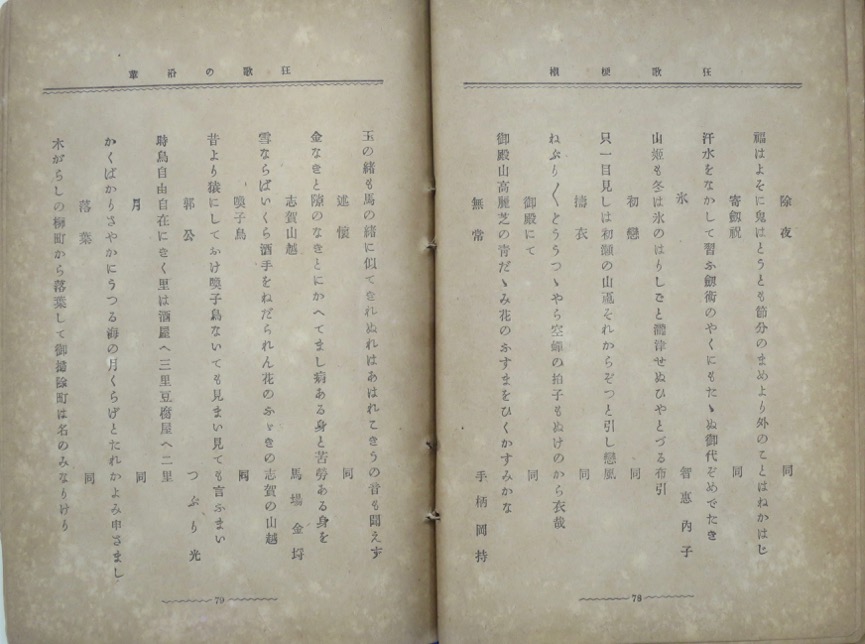 狂歌梗概
除夜
同
福はよそに鬼はとうとも節分のまめより外のことはねかはじ
寄劔祝
同
汗水をなかして習ふ劔術のやくにもたゝぬ御代ぞめでたき
氷
智惠內子
山姬も冬は氷のはりしごと瀧津せぬひやとづる布引
初戀
同
只一目見しは初瀨の山颪それからぞつと引し戀風
擣衣
同
ねぶり〱とうつゝやら空蟬の拍子もぬけのから衣哉
御殿にて
同
御殿山高麗芝の靑だゝみ花のふすまをひくかすみかな
無常
手柄岡持
78
狂歌の沿革
玉の緖も馬の緖に似てきれぬれはあはれこきうの音も聞えず
述懷
同
金なきと隙のなきとにかへてまし病ある身と苦勞ある身を
志賀山越
馬場金埓
雲ならばいくら酒手をねだられん花のふゞきの志賀の山越
喚子鳥
同
昔より猿にしておけ喚子鳥ないても見まい見ても言ふまい
郭公
つぶり光
時鳥自由自在にきく里は酒屋へ三里豆腐屋へ二里
月
同
かくばかりさやかにうつる海の月くらげとたれかよみ申さまし
落葉
同
木がらしの柳町から落葉して御掃除町は名のみなりけり
79